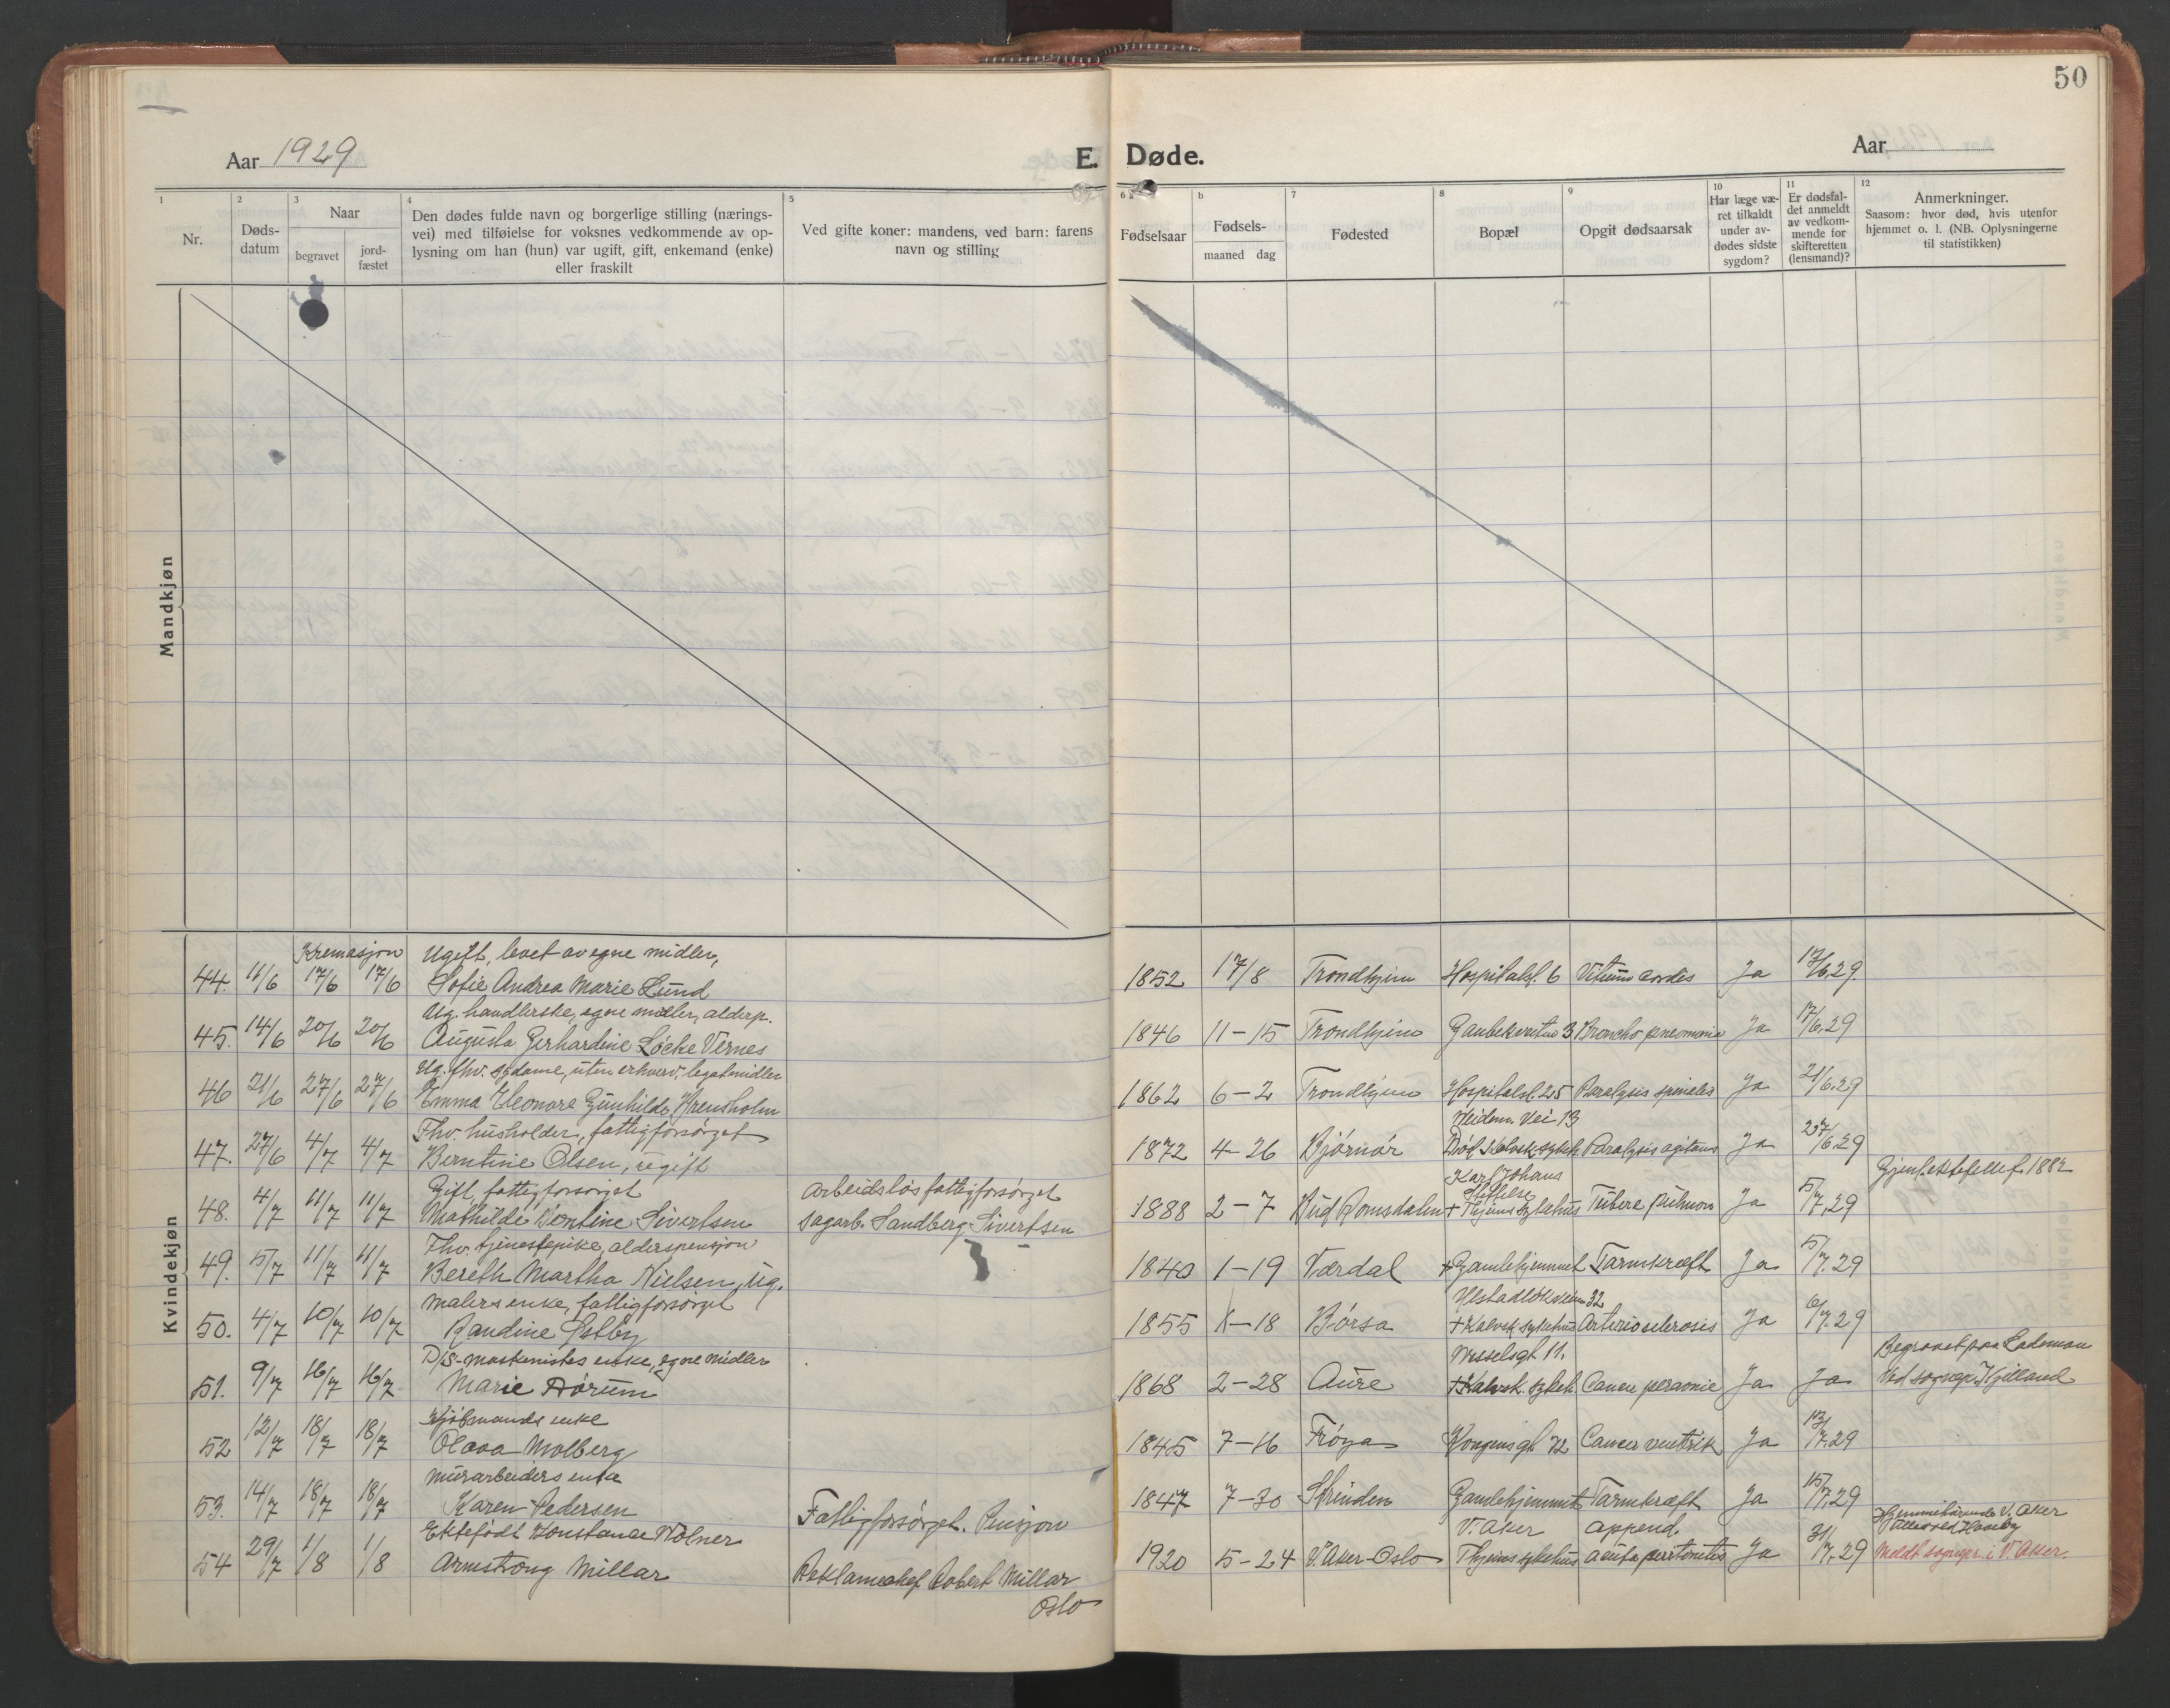 50
Aar 1929
E. Døde.
Aar
1
2
3
4
5
6 a
b
7
8
9
10
11
12
Nr.
Døds-
datum
Naar
begravet
jord-
fæstet
Den dødes fulde navn og borgerlige stilling (nærings-
vei) med tilføielse for voksnes vedkommende av op-
lysning om han (hun) var ugift, gift, enkemand (enke)
eller fraskilt
Ved gifte koner: mandens, ved barn: farens
navn og stilling
Fødselsaar
Fødsels-
maaned dag
Fødested
Bopæl
Opgit dødsaarsak
Har læge væ-
ret tilkaldt
under av-
dødes sidste
sygdom?
Er dødsfal-
det anmeldt
av vedkom-
mende for
skifteretten
(lensmand)?
Anmerkninger.
Saasom: hvor død, hvis utenfor
hjemmet o. l. (NB. Oplysningerne
til statistikken)
Mandkjøn
Kvindekjøn
Kremasjon Ugift, levet av egne midler,
44. 11/6 17/6 17/6 Sofie Andrea Marie Lund 1852 17/8 Trondhjem Hospitalsl. 6 Vitium cordis Ja 17/6.29.
Ug. handlerske, egne midler, alderp.
45. 14/6 20/6 20/6 Augusta Gerhardine Løcke Vernes 1846 11-15 Trondhjem Gaubekveita 3 Broncho pneumonia Ja 17/6.29
Ug. fhv. sydame, uten erhverv, legatmidler
46 21/6 27/6 27/6 Emma Eleonore Gunhilde Hrensholm 1862 6-2 Trondhjem Hospitalsl. 25 Paralysis spinales Ja 21/6.29
Fhv. husholder, fattigforsørget
Weidem. Vei 13
47. 27/6 4/7 4/7 Berntine Olsen, ugift 1872 4-26 Bjørnør Kalvsk. sykeh. Paralysis agitans Ja 27/6.29
Gift, fattigforsørget
Arbeidsløs fattigforsørget
Karl Johans
Stiftelse
Gjenl. ektefelle f. 1882
48. 4/7 11/7 11/7 Mathilde Bentine Sivertsen sagarb. Sandberg Sivertsen 1888 2-7 Bud Romsdalen + Thjems sykehus Tuberc pulmon Ja 5/7.29
Fhv. tjenestepike, alderspensjon
49. 5/7 11/7 11/7 Bereth Martha Nielsen, ug. 1840 1-19 Værdal + Gamlehjemmet Tarmkræft Ja 5/7.29
Malers enke, fattigforsørget
Ulstadløkveien 32
50. 4/7 10/7 10/7 Randine Østby 1855 -18 Børsa + Kalvsk. sykehus Arteriosclerosis Ja 6/7.29
D/S-maskinistes enke, egne midler
Wesselsgt 11.
Begravet paa Lademoen
51. 9/7 16/7 16/7 Marie Aörum 1868 2-28 Aure + Kalvsk. sykeh. Cancer Ja Ja ved sognepr. Kjelland
Kjøbmands enke
52 12/7 18/7 18/7 Olava Molberg 1845 7-16 Frøya Kongensgt 72 Cancer ventrik Ja 13/7.29
Murarbeiders enke
53. 14/7 18/7 18/7 Karen Pedersen Fattigforsørget. Pensjon 1847 7-30 Strinden Gamlehjemmet Tarmkræft Ja 15/7.29
Ektefødt Konstance Wolner
V. Aker append.
Hjemmehørende V. Aker
54 29/7 1/8 1/8 Armstrong Millar Reklamechef Robert Millar 1920 5-24 V. Aker-Oslo Thjems sykehus acuta peritonitis Ja 31/7.29 Meldt sognepr. i V. Aker.
Oslo